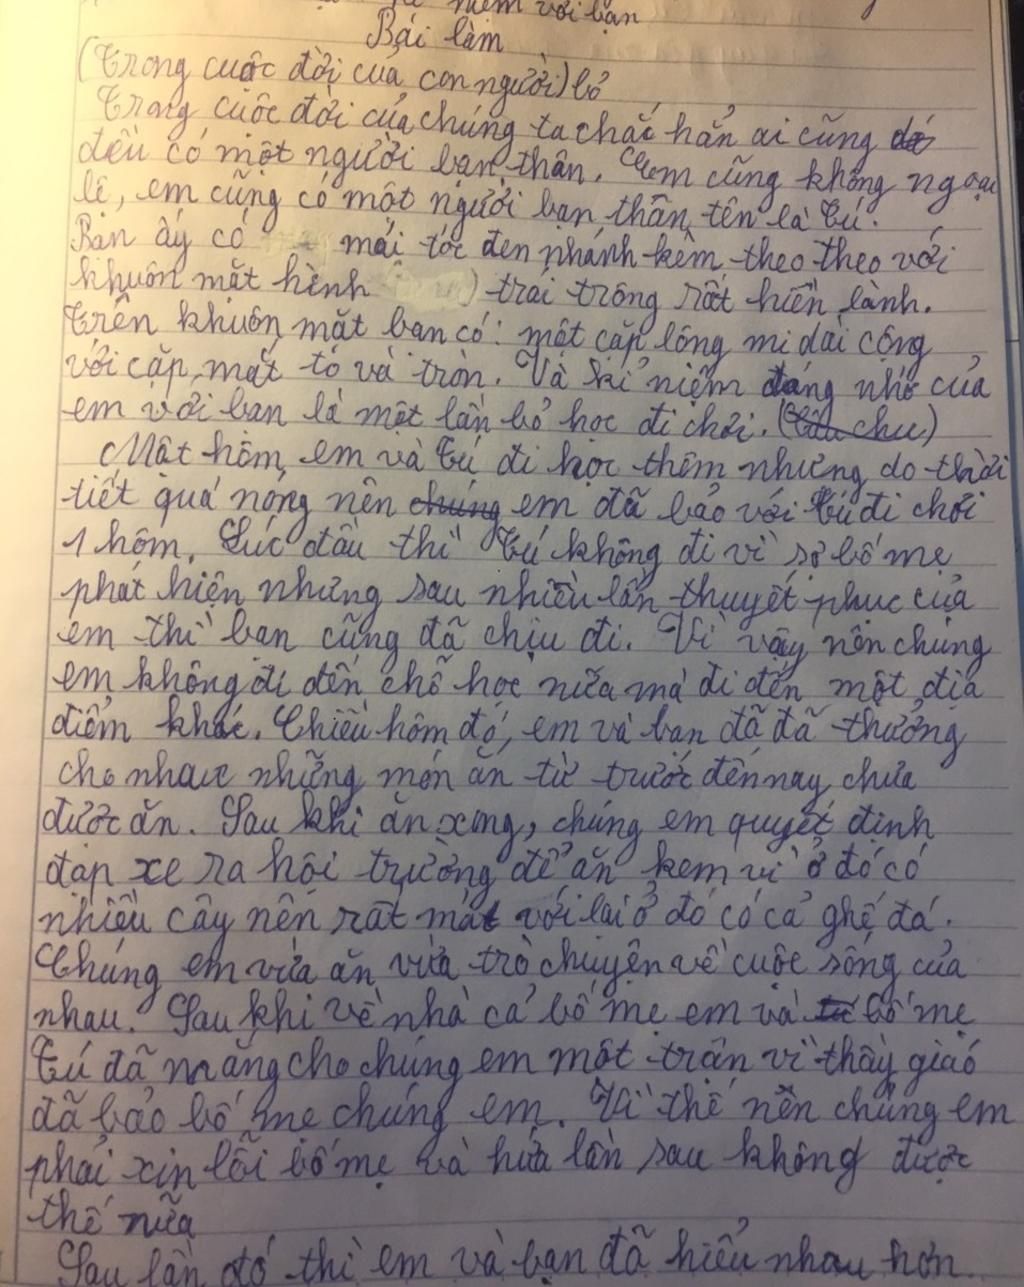 niệm với bạn
Bài làm
(Trong cuộc đời của con người) bỏ
Trong cuộc đời của chúng ta chắc hẳn ai cũng
đều có một người bạn thân. Em cũng không ngoại
lệ, em cũng có một người bạn thân tên là Tú.
Bạn ấy có mái tóc đen nhánh kèm theo theo với
khuôn mặt hình trái trông rất hiền lành.
Trên khuôn mặt bạn có: một cặp lông mi dài cộng
với cặp mắt to và tròn. Và kỉ niệm đáng nhớ của
em với bạn là một lần bỏ học đi chơi.
Một hôm, em và Tú đi học thêm nhưng do thời
tiết quá nóng nên chúng em đã bảo với Tú đi chơi
1 hôm. Lúc đầu thì Tú không đi vì sợ bố mẹ
phát hiện nhưng sau nhiều lần thuyết phục của
em thì bạn cũng đã chịu đi. Vì vậy nên chúng
em không đi đến chỗ học nữa mà đi đến một địa
điểm khác. Chiều hôm đó, em và bạn đã đã thưởng
cho nhau những món ăn từ trước đến nay chưa
được ăn. Sau khi ăn xong, chúng em quyết định
đạp xe ra hội trường để ăn kem vì ở đó có
nhiều cây nên rất mát với lại ở đó có cả ghế đá.
Chúng em vừa ăn vừa trò chuyện về cuộc sống của
nhau. Sau khi về nhà cả bố mẹ em và bố mẹ
Tú đã mắng cho chúng em một trận vì thầy giáo
đã bảo bố mẹ chúng em. Vì thế nên chúng em
phải xin lỗi bố mẹ và hứa lần sau không được
thế nữa
Sau lần đó thì em và bạn đã hiểu nhau hơn